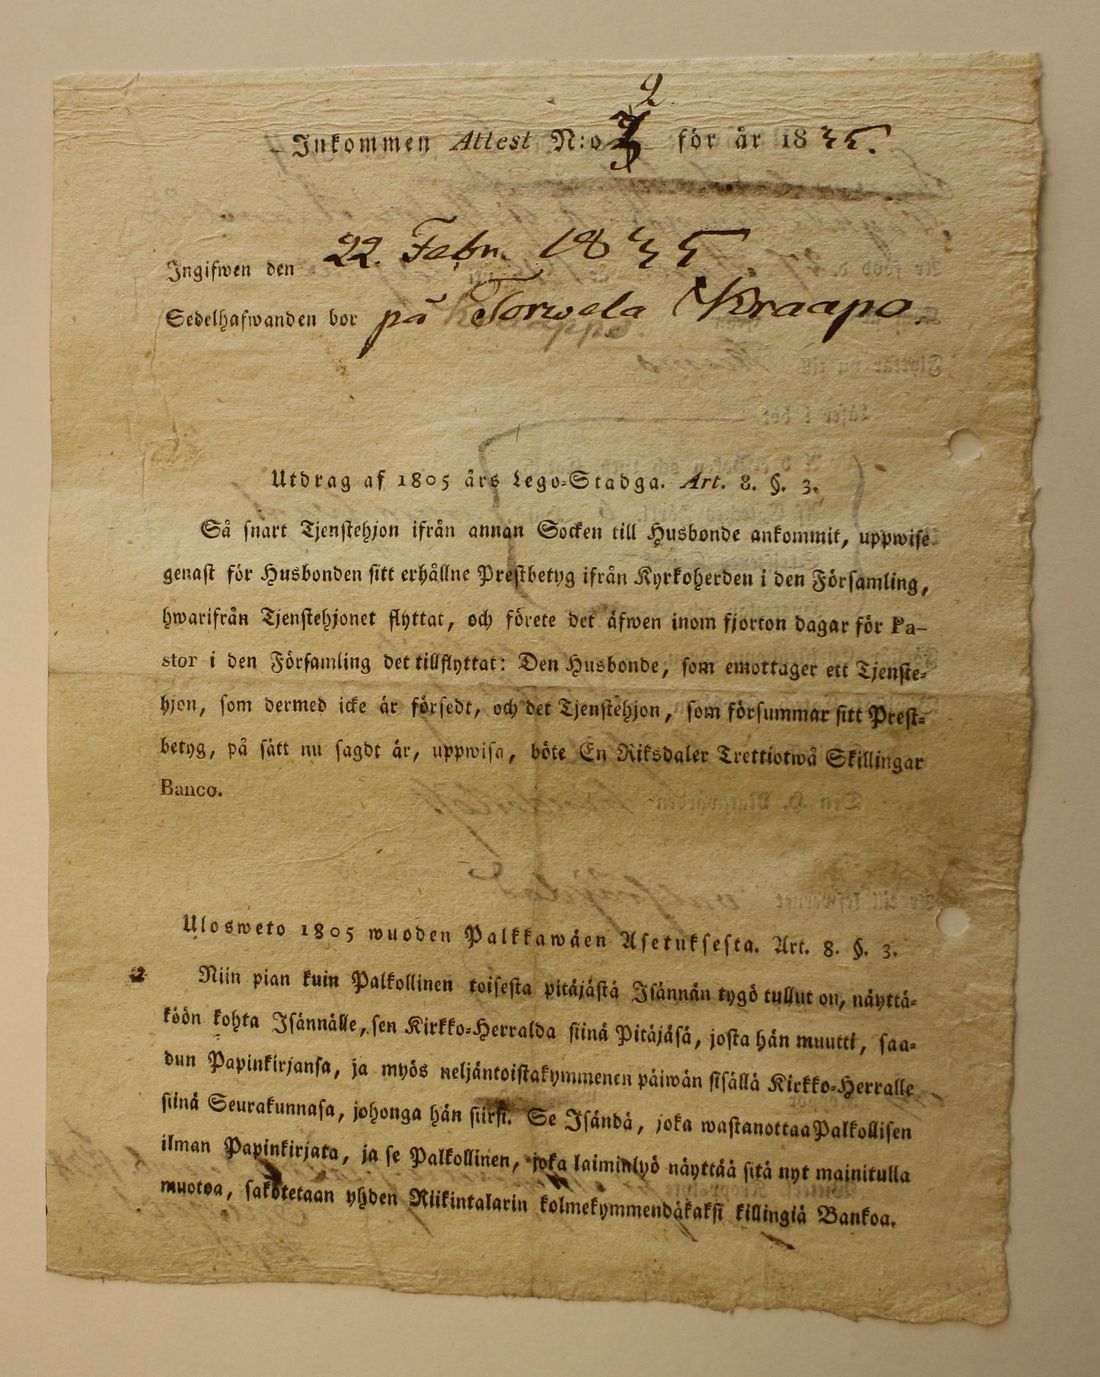 Inkommen Attest N:o för år 1835.
Ingifwen den 22. Febr. 1835
Sedelhafwanden bor på Torwela Kraapo.
Utdrag af 1805 års Lego-Stadga. Art. 8. §. 3.
Så snart Tjenstehjon ifrån annan Socken till Husbonde ankommit, uppwise
genast för Husbonden sitt erhållne Prestbetyg ifrån Kyrkoherden i den Församling,
hwarifrån Tjenstehjonet flyttat, och förete det äfwen inom fjorton dagar för Pa-
stor i den Församling det tillflyttat: Den Husbonde, som emottager ett Tjenste-
hjon, som dermed icke är försedt, och det Tjenstehjon, som försummar sitt Prest-
betyg, på sätt nu sagdt är, uppwisa, böte En Riksdaler Trettiotwå Skillingar
Banco.
Ulosweto 1805 wuoden Palkkawäen Asetuksesta. Art. 8. §. 3.
Niin pian kuin Palkollinen toisesta pitäjästä Isännän tygö tullut on, näyttä-
köön kohta Isännälle, sen Kirkko-Herralda siinä Pitäjäsä, josta hän muutti, saa-
dun Papinkirjansa, ja myös neljäntoistakymmenen päiwän sisällä Kirkko-Herralle
siinä Seurakunnasa, johonga hän siirsi. Se Isändä, joka wastanottaa Palkollisen
ilman Papinkirjata, ja se Palkollinen, joka laiminlyö näyttää sitä nyt mainitulla
muotoa, sakotetaan yhden Riikintalarin kolmekymmendäkaksi killingiä Bankoa.